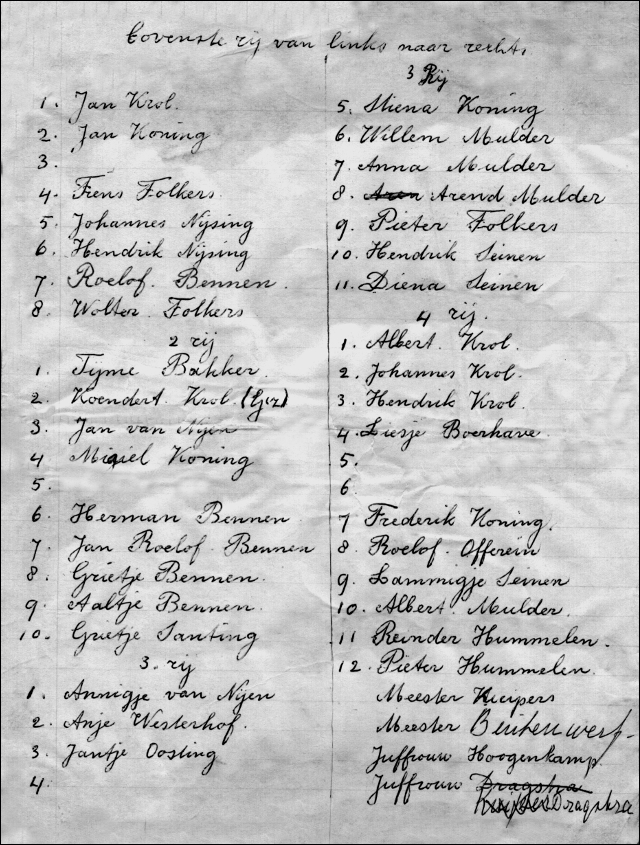 Bovenste rij van links naar rechts
1. Jan Krol.
2. Jan Koning
3.
4. Frens Folkers.
5. Johannes Nijsing
6. Hendrik Nijsing
7. Roelof. Bennen.
8. Wolter. Folkers
2 rij
1. Tijme Bakker.
2. Koendert. Krol. (Gjz)
3. Jan van Nijen
4 Migiel Koning
5.
6. Herman Bennen
7. Jan Roelof Bennen
8. Grietje Bennen.
9. Aaltje Bennen.
10. Grietje Santing
3. rij
1. Annigje van Nijen
2. Anje Westerhof.
3. Jantje Oosting
4.
3 Rij
5. Stiena Koning
6. Willem Mulder
7. Anna Mulder
8. Aren Arend Mulder
9. Pieter Folkers
10. Hendrik Seinen
11. Diena Seinen
4 rij.
1. Albert. Krol.
2. Johannes Krol.
3. Hendrik Krol.
4. Liesje Boerhave.
5.
6
7 Frederik Koning.
8 Roelof. Offerein
9. Lammigje Seinen
10. Albert. Mulder.
11 Reinder Hummelen.
12. Pieter Hummelen.
Meester Kuipers
Meester Beukenwerf.
Juffrouw Hoogenkamp.
Juffrouw Dragstra
Dragstra